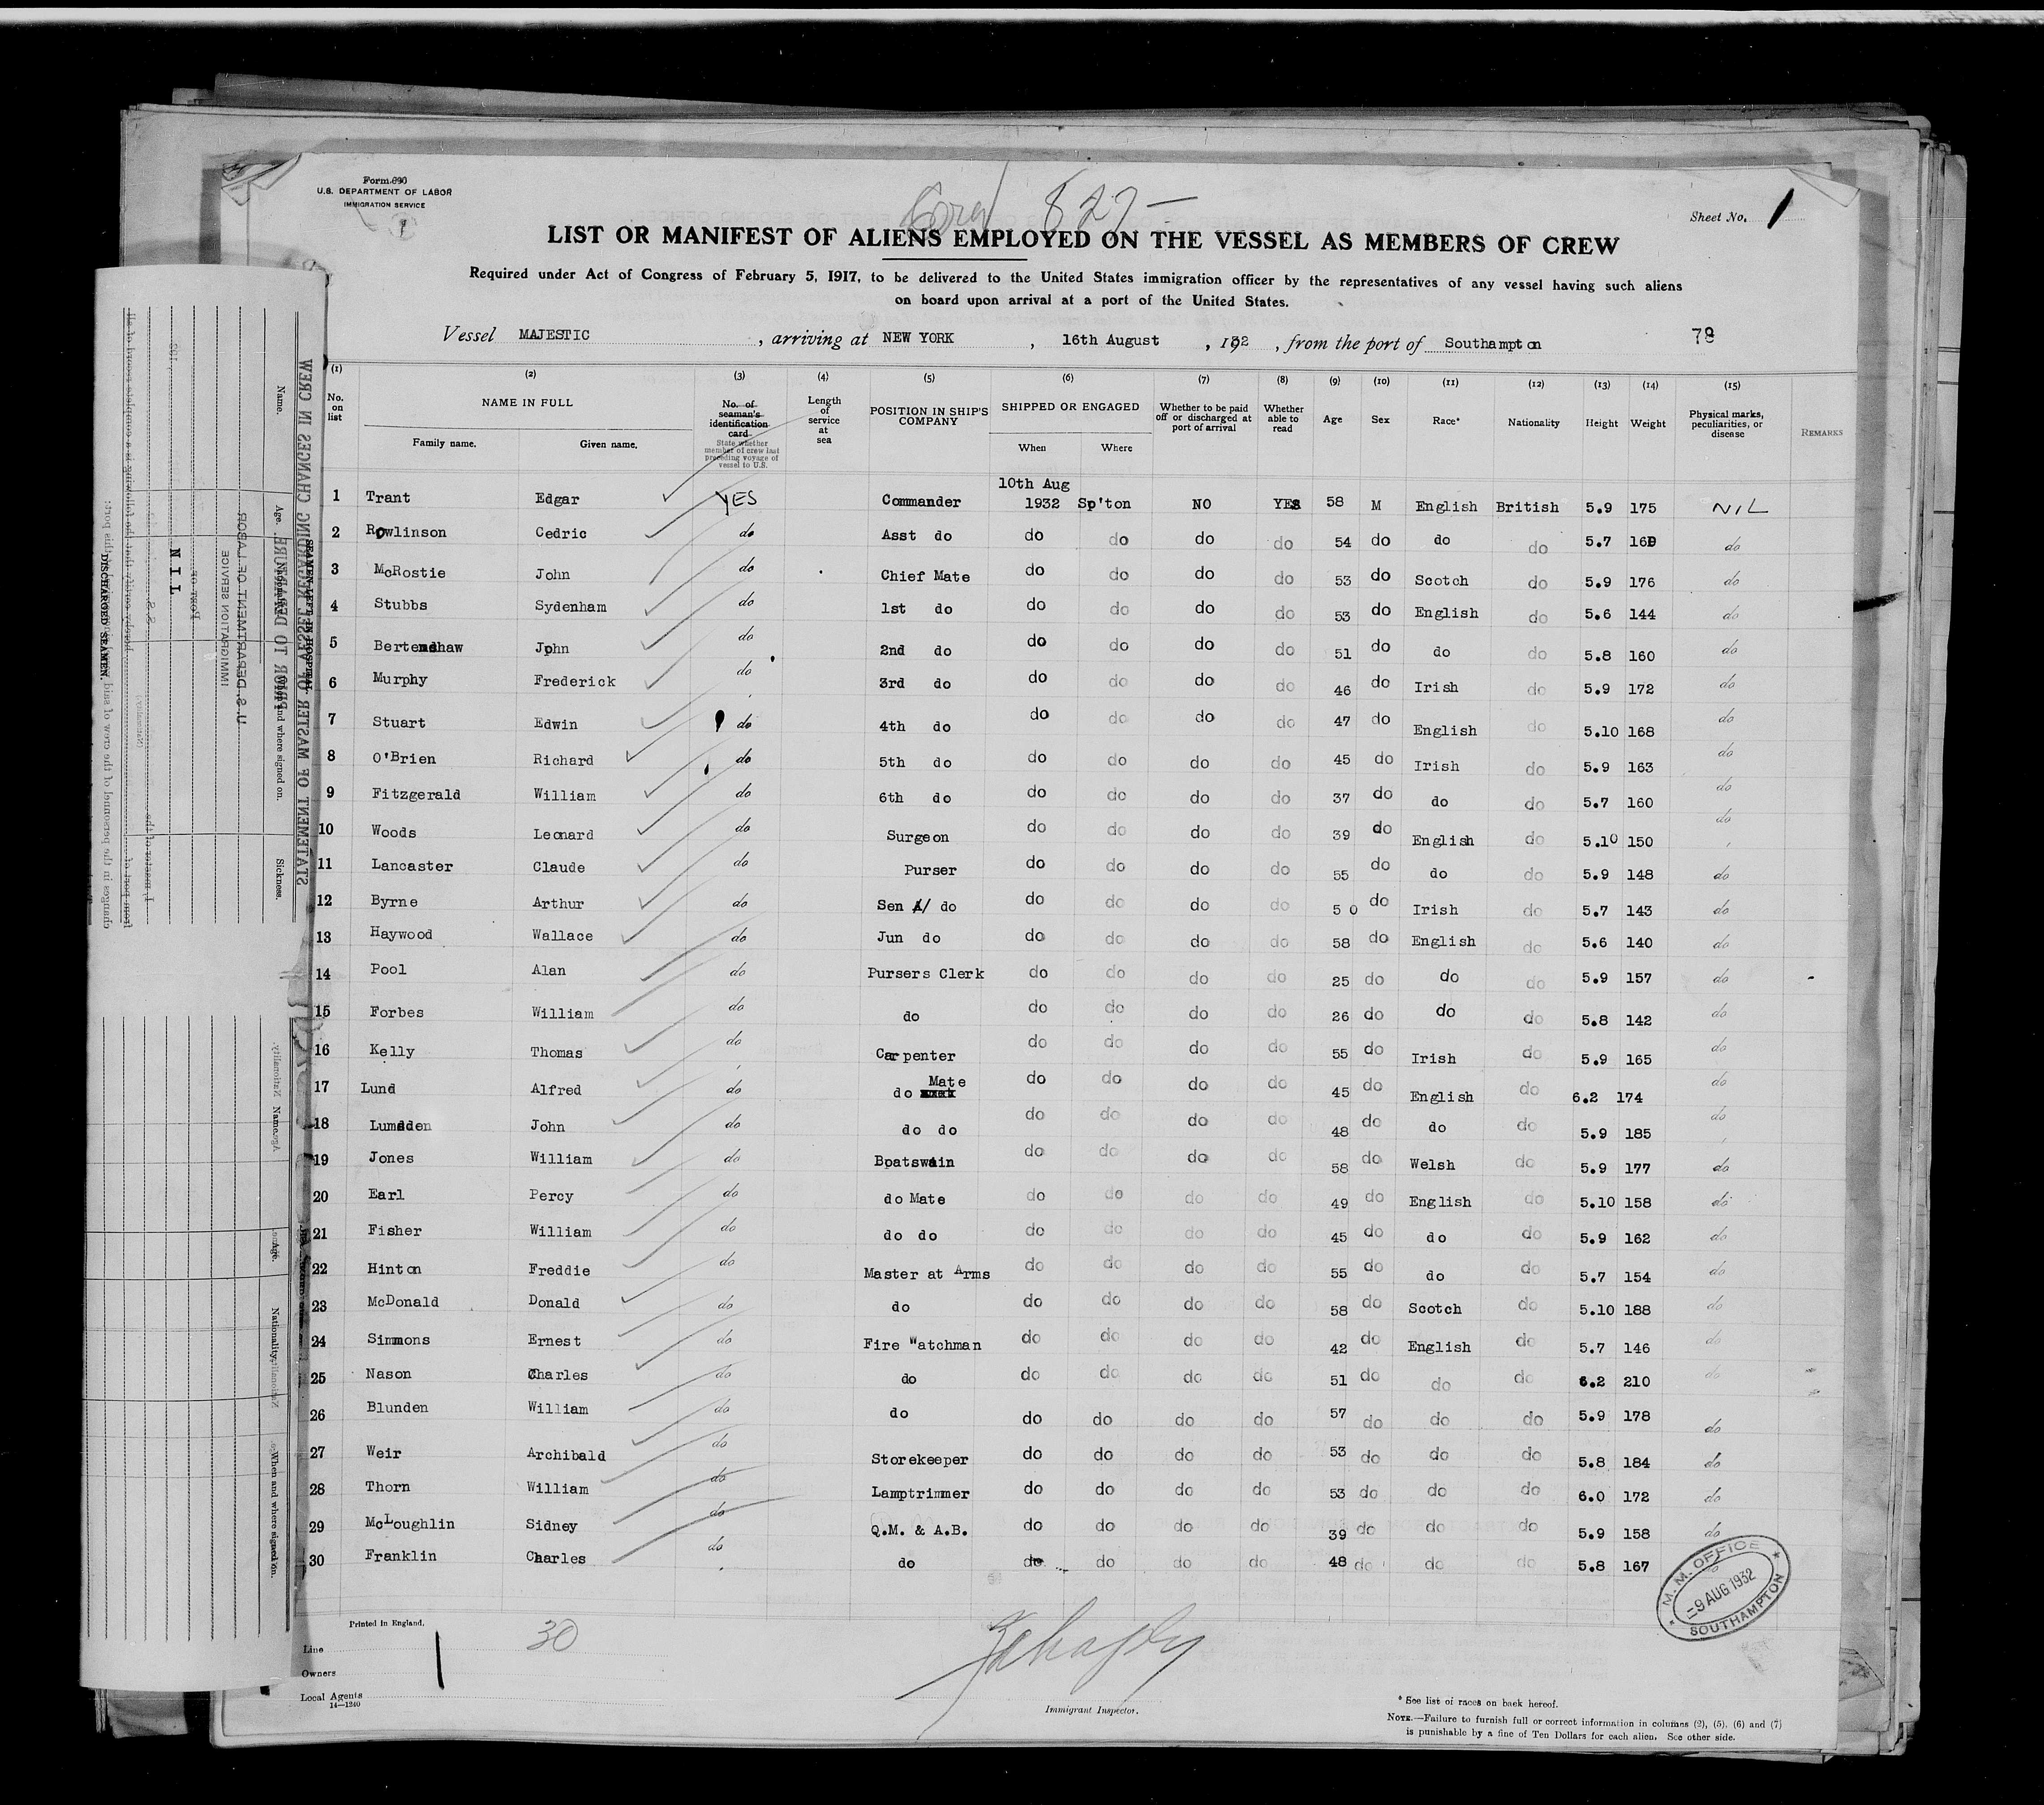 Form 690
U.S. DEPARTMENT OF LABOR
IMMIGRATION SERVICE
827 —
Sheet No. 1
LIST OR MANIFEST OF ALIENS EMPLOYED ON THE VESSEL AS MEMBERS OF CREW
Required under Act of Congress of February 5, 1917, to be delivered to the United States immigration officer by the representatives of any vessel having such aliens
on board upon arrival at a port of the United States.
Vessel MAJESTIC, arriving at NEW YORK, 16th August, 1932, from the port of Southampton 78
(1) (2) (3) (4) (5) (6) (7) (8) (9) (10) (11) (12) (13) (14) (15)
No. on list NAME IN FULL Family name. Given name. No. of seaman's identification card State whether member of crew last preceding voyage of vessel to U.S. Length of service at sea POSITION IN SHIP'S COMPANY SHIPPED OR ENGAGED When Where Whether to be paid off or discharged at port of arrival Whether able to read Age Sex Race* Nationality Height Weight Physical marks, peculiarities, or disease REMARKS
1 Trant Edgar YES Commander 10th Aug 1932 Sp'ton NO YES 58 M English British 5.9 175 NIL
2 Rowlinson Cedric do Asst do do do do do 54 do do do 5.7 160 do
3 McRostie John do Chief Mate do do do do 53 do Scotch do 5.9 176 do
4 Stubbs Sydenham do 1st do do do do do 53 do English do 5.6 144 do
5 John do 2nd do do do do do 51 do do do 5.8 160 do
6 Murphy Frederick do 3rd do do do do do 46 do Irish do 5.9 172 do
7 Stuart Edwin do 4th do do do do do 47 do English do 5.10 168 do
8 O'Brien Richard do 5th do do do do do 45 do Irish do 5.9 163 do
9 Fitzgerald William do 6th do do do do do 37 do do do 5.7 160 do
10 Woods Leonard do Surgeon do do do do 39 do English do 5.10 150 do
11 Lancaster Claude do Purser do do do do 55 do do do 5.9 148 do
12 Byrne Arthur do Sen A/ do do do do do 50 do Irish do 5.7 143 do
13 Haywood Wallace do Jun do do do do do 58 do English do 5.6 140 do
14 Pool Alan do Pursers Clerk do do do do 25 do do do 5.9 157 do
15 Forbes William do do do do do do 26 do do do 5.8 142 do
16 Kelly Thomas do Carpenter do do do do 55 do Irish do 5.9 165 do
17 Lund Alfred do do Mate do do do do 45 do English do 6.2 174 do
18 Lumdden John do do do do do do do 48 do do do 5.9 185 do
19 Jones William do Boatswain do do do do 58 do Welsh do 5.9 177 do
20 Earl Percy do do Mate do do do do 49 do English do 5.10 158 do
21 Fisher William do do do do do do do 45 do do do 5.9 162 do
22 Hinton Freddie do Master at Arms do do do do 55 do do do 5.7 154 do
23 McDonald Donald do do do do do do 58 do Scotch do 5.10 188 do
24 Simmons Ernest do Fire Watchman do do do do 42 do English do 5.7 146 do
25 Nason Charles do do do do do do 51 do do do 6.2 210 do
26 Blunden William do do do do do do 57 do do do 5.9 178 do
27 Weir Archibald do Storekeeper do do do do 53 do do do 5.8 184 do
28 Thorn William do Lamptrimmer do do do do 53 do do do 6.0 172 do
29 McLoughlin Sidney do Q.M. & A.B. do do do do 39 do do do 5.9 158 do
30 Franklin Charles do do do do do do 48 do do do 5.8 167
M. M. OFFICE
9 AUG 1932
SOUTHAMPTON
Printed in England.
30
Line
Owners
Local Agents
14—1240
Immigrant Inspector.
* See list of races on back hereof.
NOTE.—Failure to furnish full or correct information in columns (2), (5), (6) and (7)
is punishable by a fine of Ten Dollars for each alien. See other side.
STATEMENT OF MASTER OF VESSEL REGARDING CHANGES IN CREW
U.S. DEPARTMENT OF LABOR
IMMIGRATION SERVICE
NIL
DISCHARGED SEAMEN.
Name.
Age.
When and where signed on.
Sickness.
Name.
Age.
Nationality.
When and where signed on.